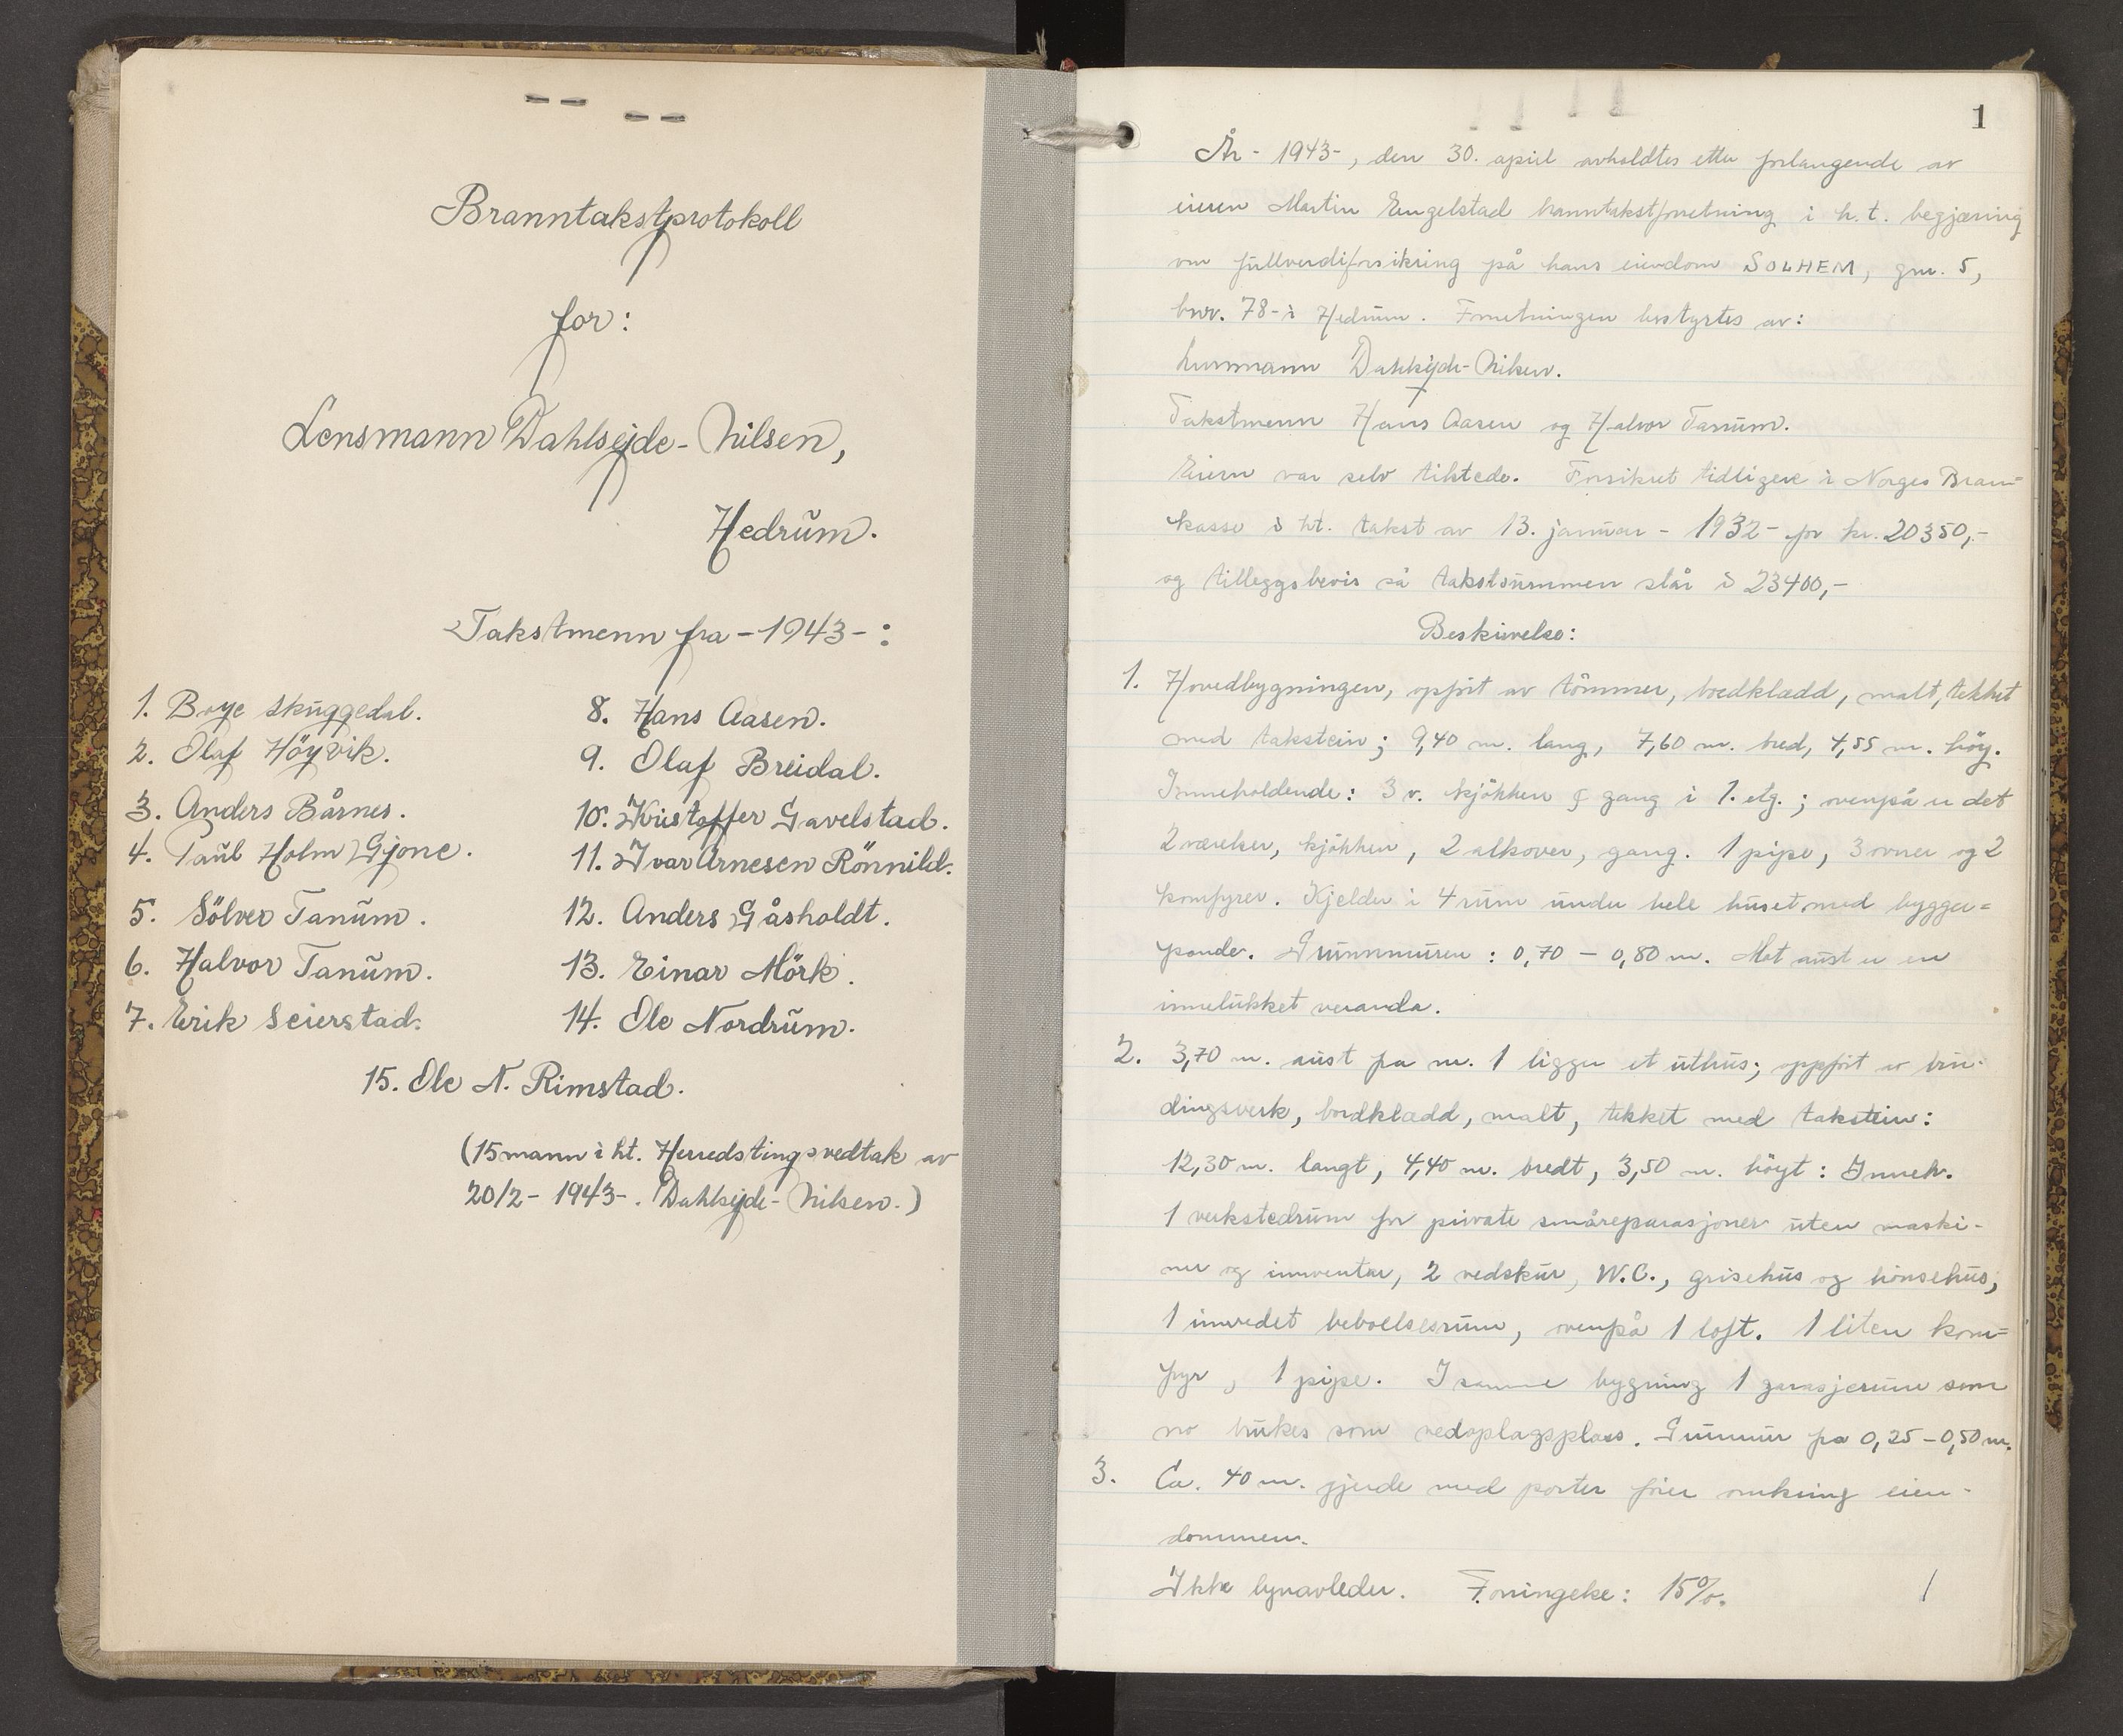 Branntakstprotokoll
for:
Lensmann Dahlsejde-Nilsen,
Hedrum.
Takstmenn fra -1943-:
1. Boye Skuggedal.
2. Olaf Höyvik.
3. Anders Bårnes.
4. Paul Holm Gjone.
5. Sölver Tanum.
6. Halvor Tanum.
7. Erik Seierstad.
8. Hans Aasen.
9. Olaf Breidal.
10. Kristoffer Gavelstad.
11. Ivar Arnesen Rönnild.
12. Anders Gåsholdt.
13. Einar Mörk.
14. Ole Nordrum.
15. Ole N. Rimstad.
(15 mann i ht. Herredstingsvedtak av
20/2 - 1943-. Dahlsejde-Nilsen.)
1
År - 1943-, den 30. april avholdtes etter forlangende av
eieren Martin Engelstad branntakstforretning i h.t. begjæring
om fullverdiforsikring på hans eiendom SOLHEM, gnr. 5,
bnr. 78 - i Hedrum. Forretningen bestyrtes av:
lensmann Dahlsejde-Nilsen.
Takstmenn Hans Aasen og Halvor Tanum.
Eieren var selv tilstede. Forsikret tidligere i Norges Bran=
kasse i ht. takst av 13. januar - 1932 - for kr. 20350,-
og tilleggsbevis så takstsummen står i 23400,-
Beskrivelse:
1. Hovedbygningen, oppfört av tömmer, bordkladd, malt, tekket
med takstein; 9,40 m. lang, 7,60 m. bred, 4,55 m. höy.
Inneholdende: 3 v. kjökken & gang i 1. etg.; ovenpå er det
2 værelser, kjökken, 2 alkover, gang. 1 pipe, 3 ovner og 2
komfyrer. Kjelder i 4 rum under hele huset med brygger=
panne. Grunnmuren: 0,70 - 0,80 m. Mot aust er en
innelukket veranda.
2. 3,70 m. aust fra nr. 1 ligger et uthus; oppfört av bin-
dingsverk, bordkladd, malt, tekket med takstein:
12,30 m. langt, 4,40 m. bredt, 3,50 m. höyt: Inneh.
1 verkstedrum for private småreparasjoner uten maski-
ner og inventar, 2 vedskur, W.C., grisehus og hönsehus,
1 innredet beboelsesrum, ovenpå 1 loft. 1 liten kom=
fyr, 1 pipe. I samme bygning 1 garasjerum som
no brukes som vedoplagsplass. Grunnmur fra 0,25 - 0,50 m.
3. Ca. 40 m. gjerde med porter förer omkring eien-
dommen.
Ikke lynavleder. Foringelse: 15%.